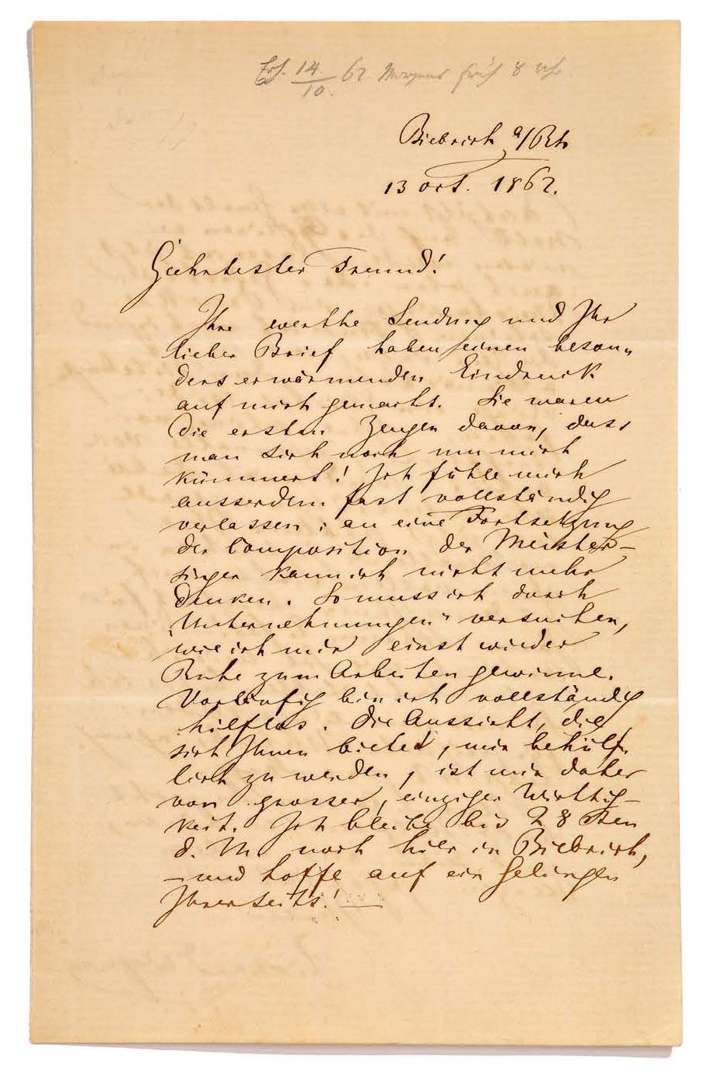 14/10 62. Morgens früh 8 Uhr
Biebrich a/Rh
13 Oct. 1862.
Geehrtester Freund!
Ihre werthe Sendung und Ihr
lieber Brief haben einen beson„
ders erwärmenden Eindruck
auf mich gemacht. Sie waren
die ersten Zeugen davon, dass
man sich noch um mich
kümmert! Ich fühle mich
ausserdem fast vollständig
verlassen; an eine Fortsetzung
der Composition der Meister–
singer kann ich nicht mehr
denken. So muss ich durch
„Unternehmungen" versuchen,
wie ich mir einst wieder
Ruhe zum Arbeiten gewinne.
Vorläufig bin ich vollständig
hilflos. Die Aussicht, die
sich Ihnen bietet, mir behülf„
lich zu werden, ist mir daher
von grosser, einziger Wichtig–
keit. Ich bleibe bis 28 sten
d. M noch hier in Biebrich,
– und hoffe auf ein Gelingen
Ihrerseits! —